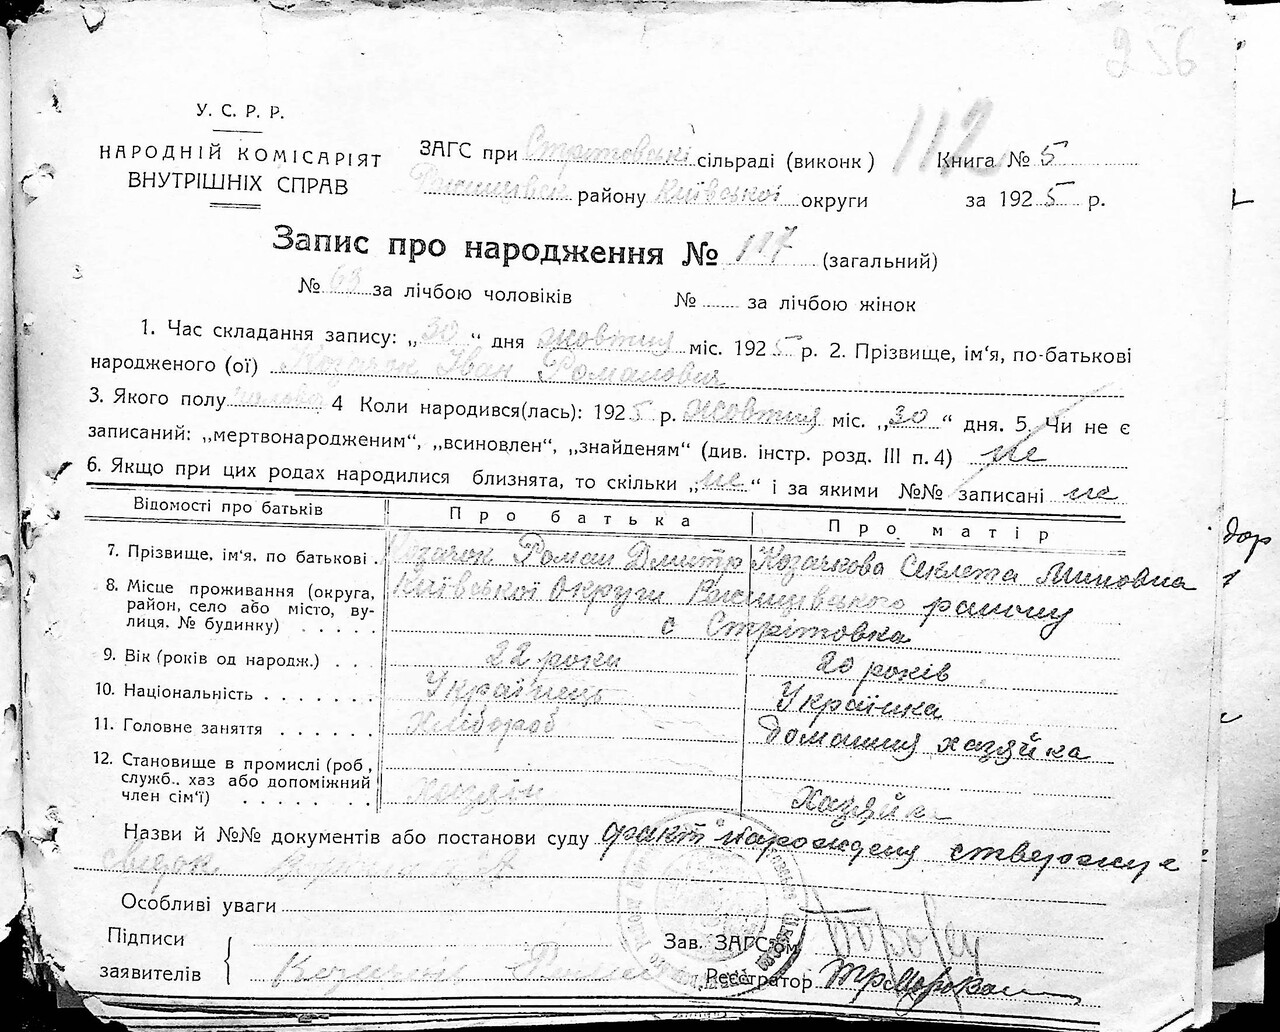 256
У. С. Р. Р.
НАРОДНІЙ КОМІСАРІЯТ
ВНУТРІШНІХ СПРАВ
112
ЗАГС при Стрітовські сільраді (виконк) Книга № 5
району Київської округи за 1925 р.
Запис про народження № 117 (загальний)
№ 63 за лічбою чоловіків № за лічбою жінок
1. Час складання запису: „30“ дня жовтня міс. 1925 р. 2. Прізвище, ім'я, по-батькові
народженого (ої) Козачок Іван Романович
3. Якого полу 4 Коли народився(лась): 1925 р. жовтня міс. „30“ дня. 5. Чи не є
записаний: „мертвонародженим“, „всиновлен“, „знайденям“ (див. інстр. розд. III п. 4) не
6. Якщо при цих родах народилися близнята, то скільки „не“ і за якими №№ записані не
Відомості про батьків Про батька Про матір
7. Прізвище, ім'я, по батькові. Козачок Роман Дмитр Козачкова Секлета Миновна
8. Місце проживання (округа, район, село або місто, вулиця. № будинку) Київської Округи Ржищівського району
с Стрітовка
9. Вік (років од народж.) 22 роки 20 років
10. Національність Українець Українка
11. Головне заняття Хлібороб Домашня хазяйка
12. Становище в промислі (роб, служб., хаз або допоміжний член сім'ї) хазяїн хазяйка
Назви й №№ документів або постанови суду факт народження стверджує
Особливі уваги
Підписи
заявителів Козачок
Зав. ЗАГС'ом
Реєстратор